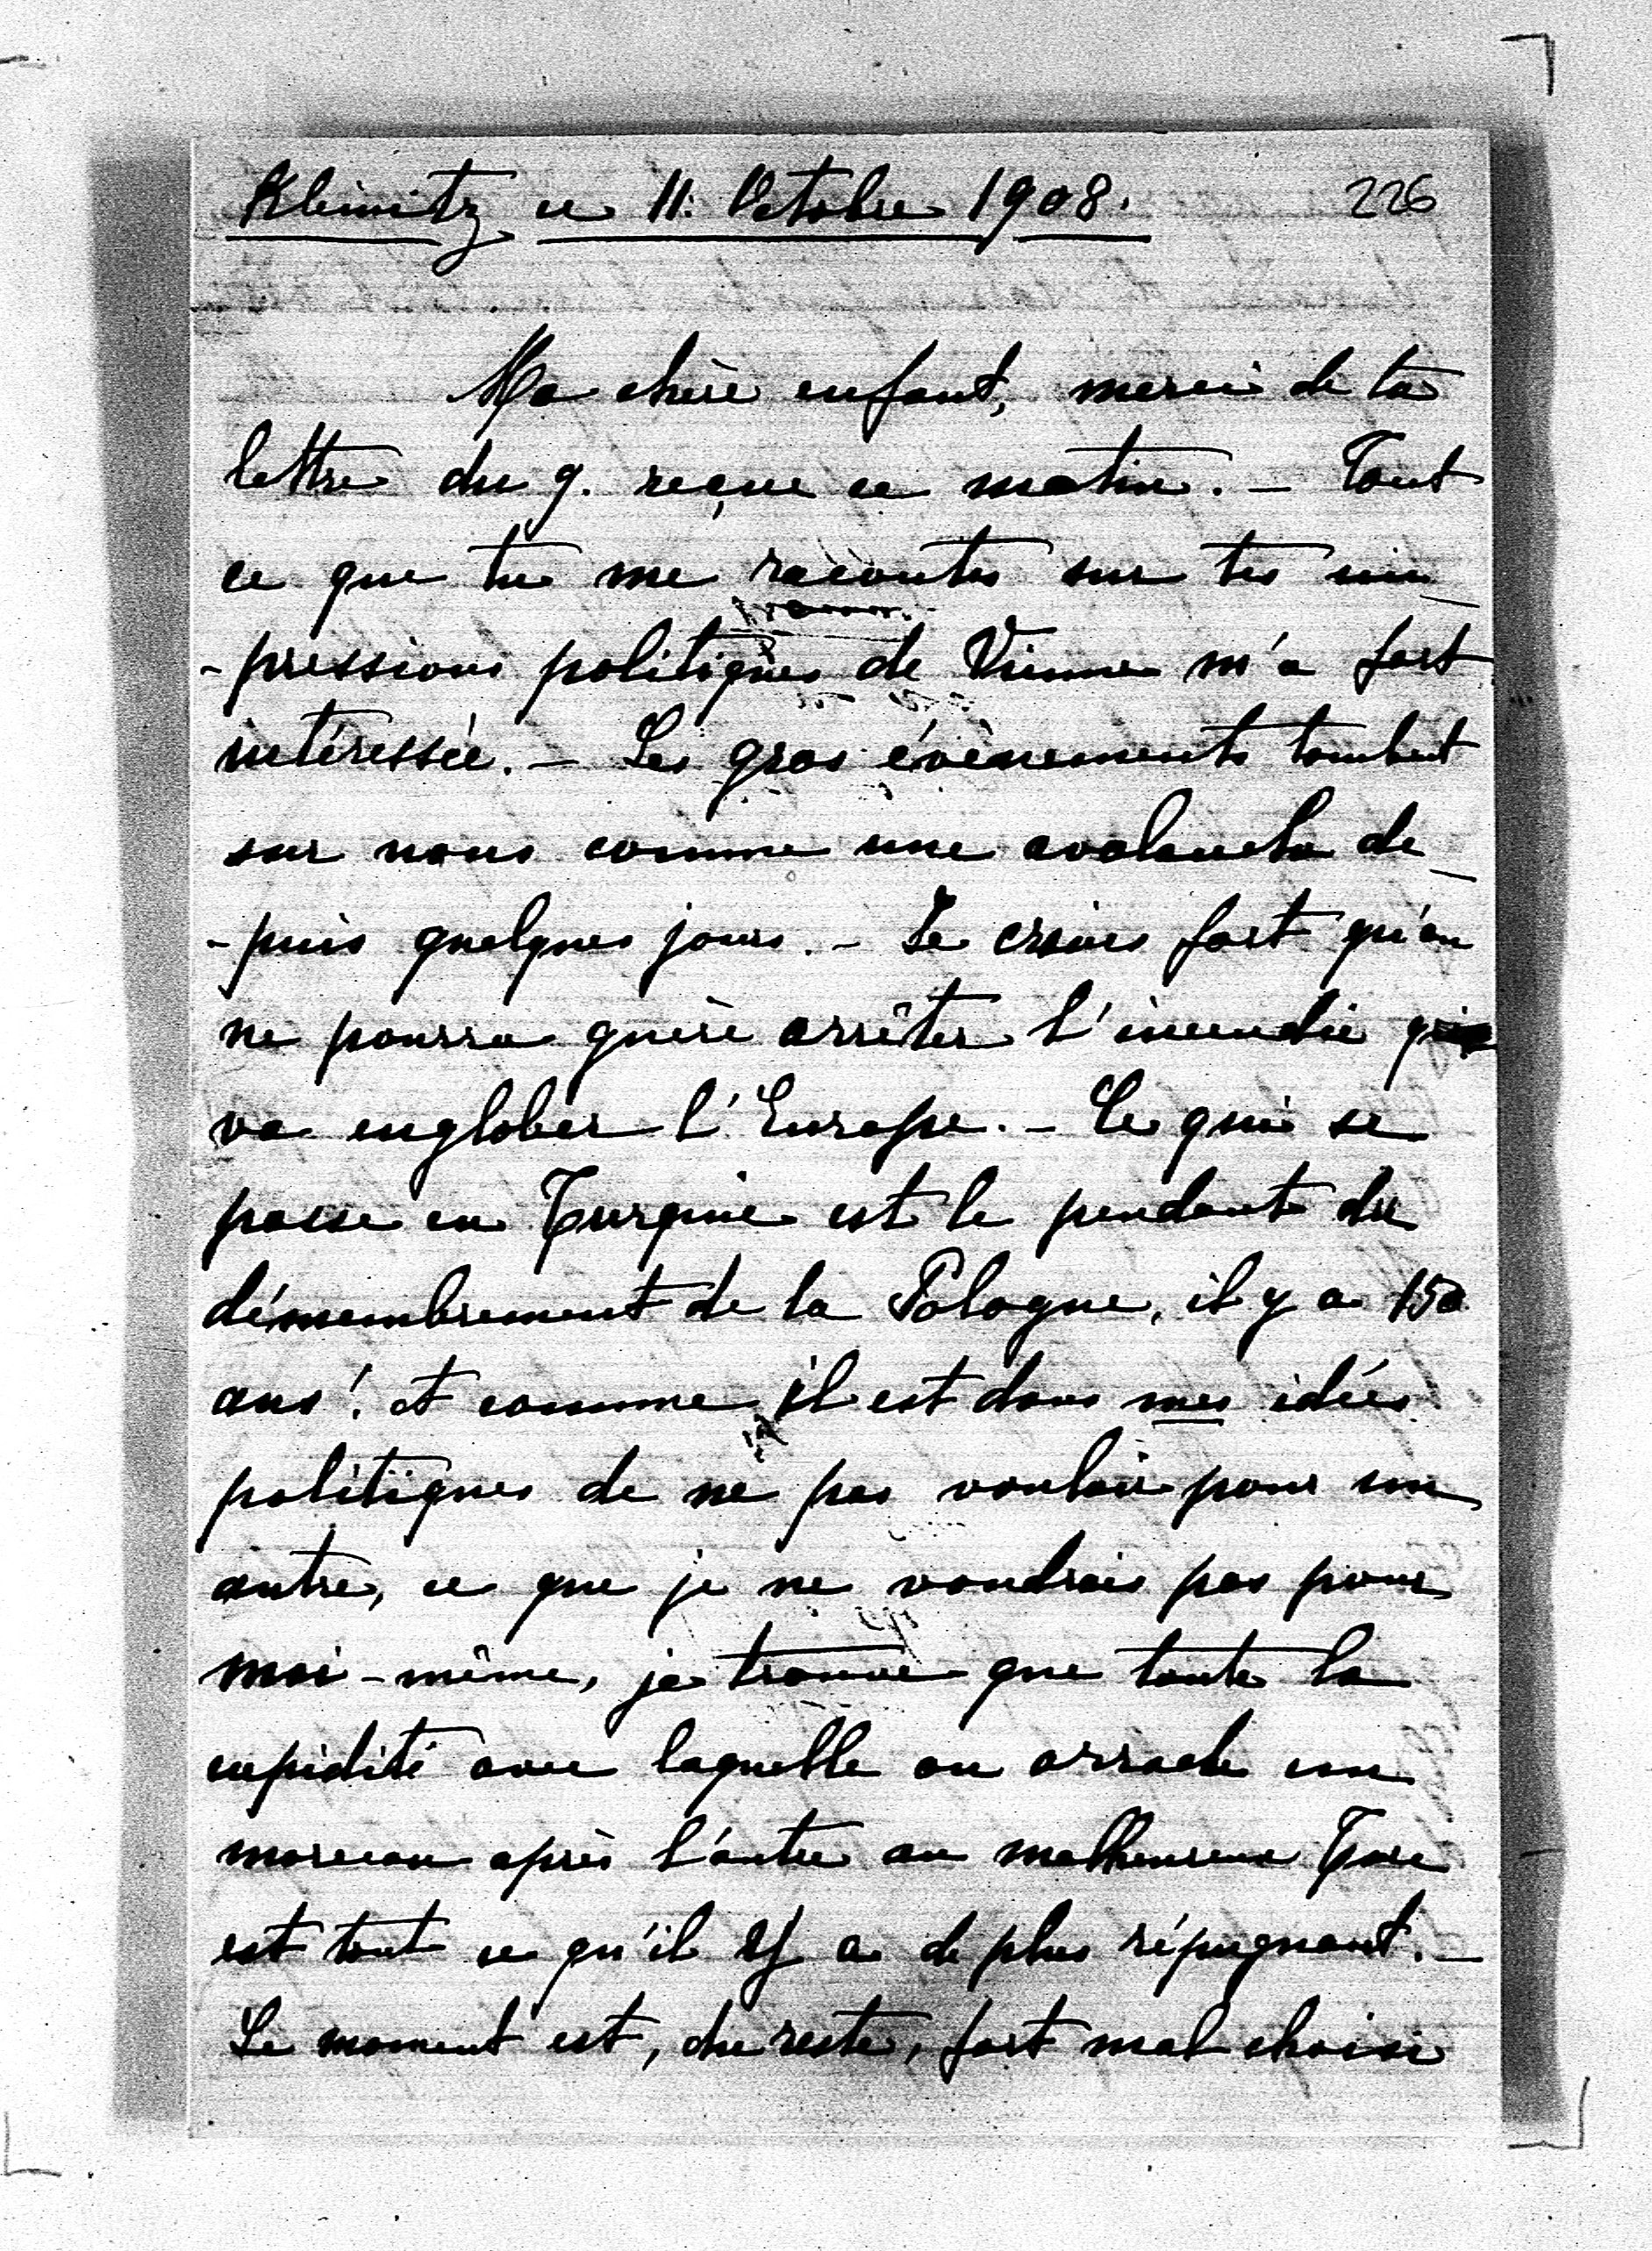 Kleinitz ce 11. Octobre 1908. 226
Ma chère enfant, merci de ta
lettre du 9. reçue ce matin. – Tout
ce que tu me racontes sur tes im-
-pressions politiques de Vienne m'a fort
intéressée. – Les gros évènements tombent
sur nous comme une avalanche de-
-puis quelques jours. – Je crains fort qu'on
ne pourra guère arrêter l'incendie qui
va englober l'Europe. – Ce qui se
passe en Turquie est le pendant du
démembrement de la Pologne, il y a 150
ans! et comme il est dans mes idées
politiques de ne pas vouloir pour un
autre, ce que je ne voudrais pas pour
moi-même, je trouve que toute la
cupidité avec laquelle on arrache un
morceau après l'autre au malheureux Turc
est tout ce qu'il y a de plus répugnant. –
Le moment est, du reste, fort mal choisi